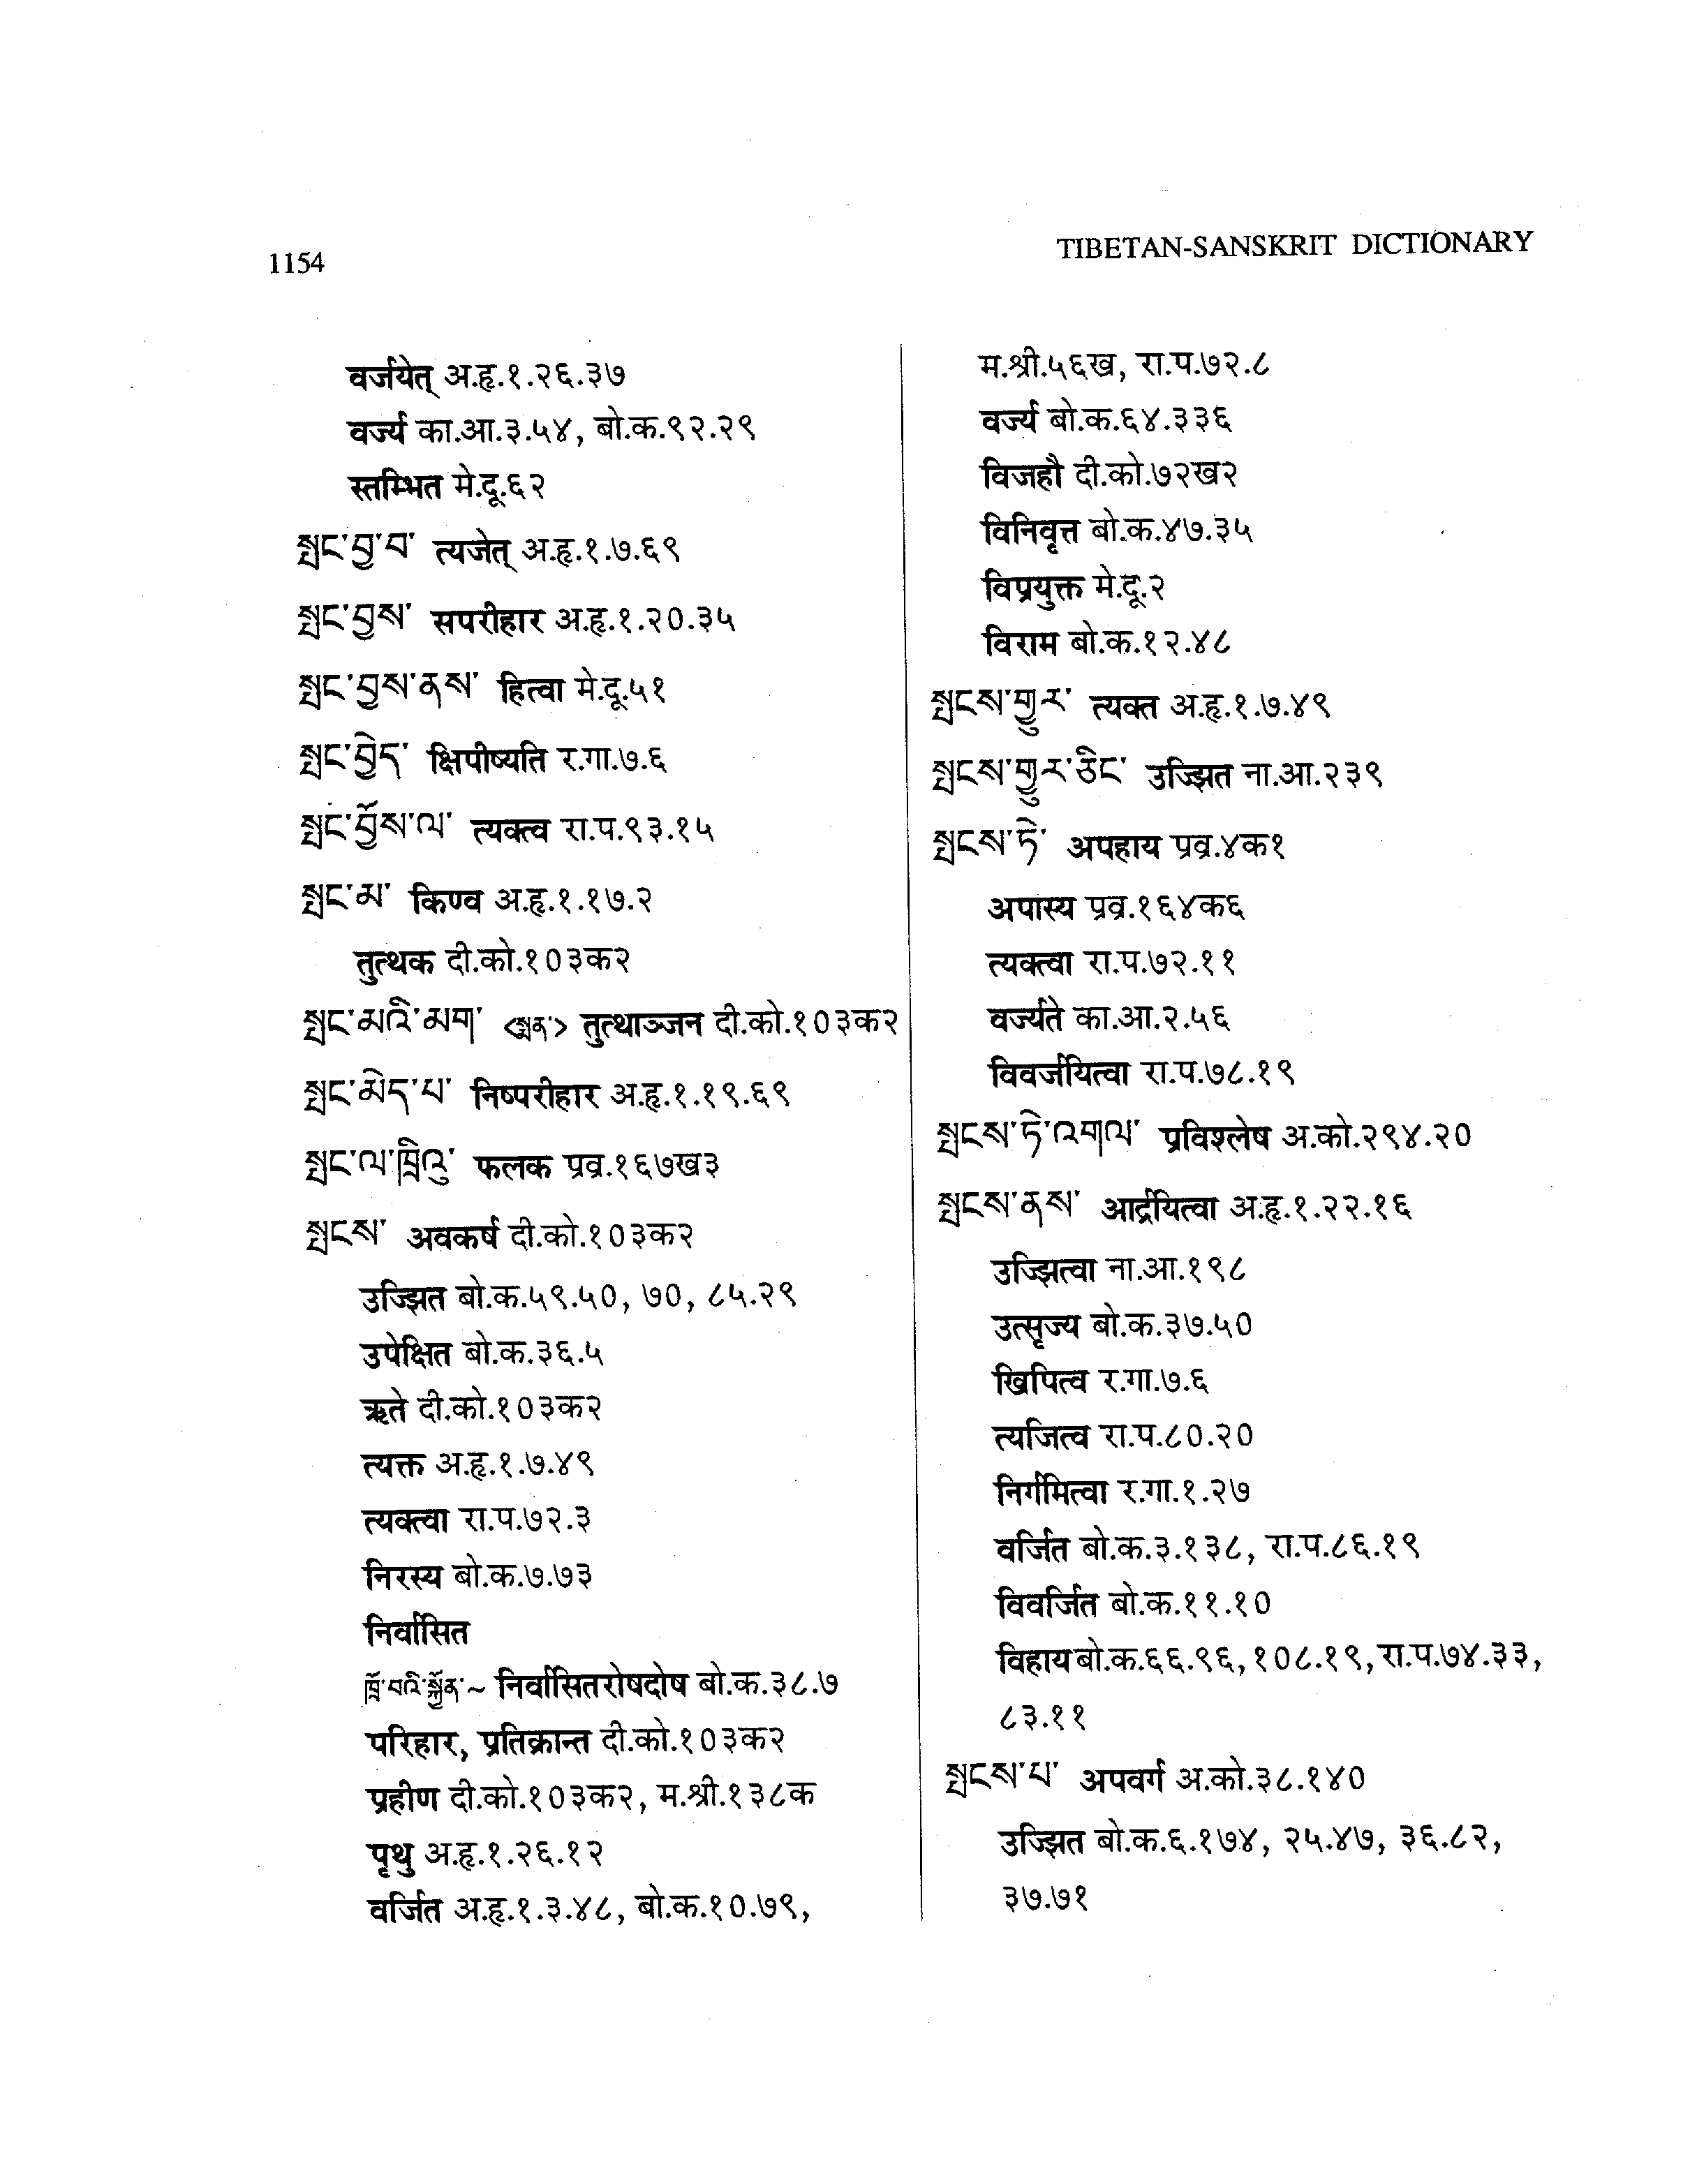 1154
TIBETAN-SANSKRIT DICTIONARY
वर्जयेत् अ.हृ.१.२६.३७
वर्ज्य का.आ.३.५४, बो.क.९२.२९
स्तम्भित मे.दू.६२
སྤང་བྱ་བ་ त्यजेत् अ.हृ.१.७.६९
སྤང་བྱས་ सपरीहार अ.हृ.१.२०.३५
སྤང་བྱས་ནས་ हित्वा मे.दू.५१
སྤང་བྱེད་ क्षिपीष्यति र.गा.७.६
སྤང་བྱོས་ལ་ त्यक्त्व रा.प.९३.१५
སྤང་མ་ किण्व अ.हृ.१.१७.२
तुत्थक दी.को.१०३क२
སྤང་མའི་མག་ <སྨན་> तुत्थाञ्जन दी.को.१०३क२
སྤང་མེད་པ་ निष्परीहार अ.हृ.१.१९.६९
སྤང་ལ་ཁྲིའུ་ फलक प्रव्र.१६७ख३
སྤངས་ अवकर्ष दी.को.१०३क२
उज्झित बो.क.५९.५०, ७०, ८५.२९
उपेक्षित बो.क.३६.५
ऋते दी.को.१०३क२
त्यक्त अ.हृ.१.७.४९
त्यक्त्वा रा.प.७२.३
निरस्य बो.क.७.७३
निर्वासित
ཁྲོ་བའི་སྐྱོན་~ निर्वासितरोषदोष बो.क.३८.७
परिहार, प्रतिक्रान्त दी.को.१०३क२
प्रहीण दी.को.१०३क२, म.श्री.१३८क
पृथु अ.हृ.१.२६.१२
वर्जित अ.हृ.१.३.४८, बो.क.१०.७९,
म.श्री.५६ख, रा.प.७२.८
वर्ज्य बो.क.६४.३३६
विजहौ दी.को.७२ख२
विनिवृत्त बो.क.४७.३५
विप्रयुक्त मे.दू.२
विराम बो.क.१२.४८
སྤངས་གྱུར་ त्यक्त अ.हृ.१.७.४९
སྤངས་གྱུར་ཅིང་ उज्झित ना.आ.२३९
སྤངས་ཏེ་ अपहाय प्रव्र.४क१
अपास्य प्रव्र.१६४क६
त्यक्त्वा रा.प.७२.११
वर्ज्यते का.आ.२.५६
विवर्जयित्वा रा.प.७८.१९
སྤངས་ཏེ་འགལ་ प्रविश्लेष अ.को.२९४.२०
སྤངས་ནས་ आर्द्रयित्वा अ.हृ.१.२२.१६
उज्झित्वा ना.आ.१९८
उत्सृज्य बो.क.३७.५०
खिपित्व र.गा.७.६
त्यजित्व रा.प.८०.२०
निर्गमित्वा र.गा.१.२७
वर्जित बो.क.३.१३८, रा.प.८६.१९
विवर्जित बो.क.११.१०
विहाय बो.क.६६.९६, १०८.१९, रा.प.७४.३३,
८३.११
སྤངས་པ་ अपवर्ग अ.को.३८.१४०
उज्झित बो.क.६.१७४, २५.४७, ३६.८२,
३७.७१